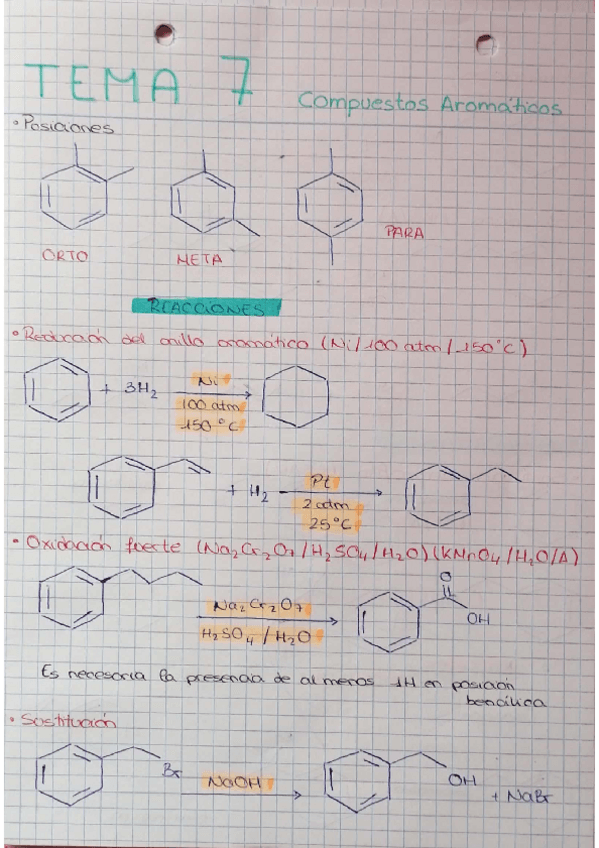 TEMA 7 Compuestos Aromáticos
• Posiciones
ORTO META PARA
REACCIONES
• Reducción del anillo aromático (Ni/100 atm/150°C)
+ 3H2 Ni
100 atm
150°C
+ H2 Pt
2 atm
25°C
• Oxidación fuerte (Na2Cr2O7/H2SO4/H2O)(KMnO4/H2O/Δ)
Na2Cr2O7
H2SO4/H2O
O
OH
Es necesaria la presencia de al menos 1H en posición
bencílica
• Sustitución
Br NaOH OH + NaBr